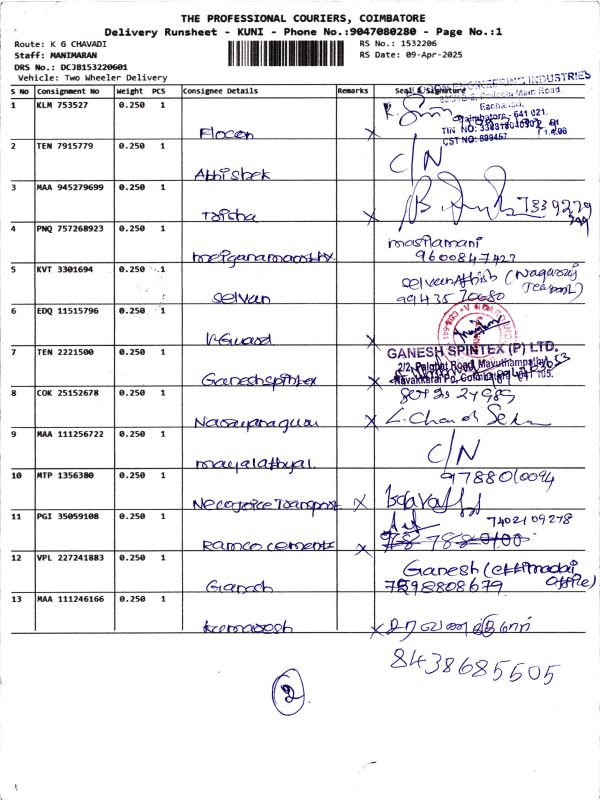 THE PROFESSIONAL COURIERS, COIMBATORE
Delivery Runsheet - KUNI - Phone No.:9047080280 - Page No.:1
Route: K G CHAVADI
RS No.: 1532206
Staff: MANIMARAN
RS Date: 09-Apr-2025
DRS No.: DCJB153220601
Vehicle: Two Wheeler Delivery
S No Consignment No Weight PCS Consignee Details Remarks Seal & Signature
ENGINEERING INDUSTRIES
Main Road,
Coimbatore - 641 021.
TIN NO:
CST NO: 899457
1 KLM 753527 0.250 1
Flocon X
2 TEN 7915779 0.250 1
Abhishek C/N
3 MAA 945279699 0.250 1
Toisha X 7339279
4 PNQ 757268923 0.250 1
masilamani
9600847427
5 KVT 3301694 0.250 1
Selvan
(Nagaraj
9943570680
6 EDQ 11515796 0.250 1
V-Guard X
7 TEN 2221500 0.250 1
GANESH SPINTEX (P) LTD.
2/2, Palghat Road, Mavuthampathy,
Navakkarai Po, Coimbatore - 641 105.
Ganesh spintex X
8 COK 25152678 0.250 1
Narayanaguru X L. Chand
9 MAA 111256722 0.250 1
C/N
mayalathyal.
10 MTP 1356380 0.250 1
9788010094
X
11 PGI 35059108 0.250 1
7402109278
Ramco cements X
12 VPL 227241883 0.250 1
Ganesh (ettimadai
office)
Ganesh 7598808679
13 MAA 111246166 0.250 1
Kumaresh X
8438685505
2